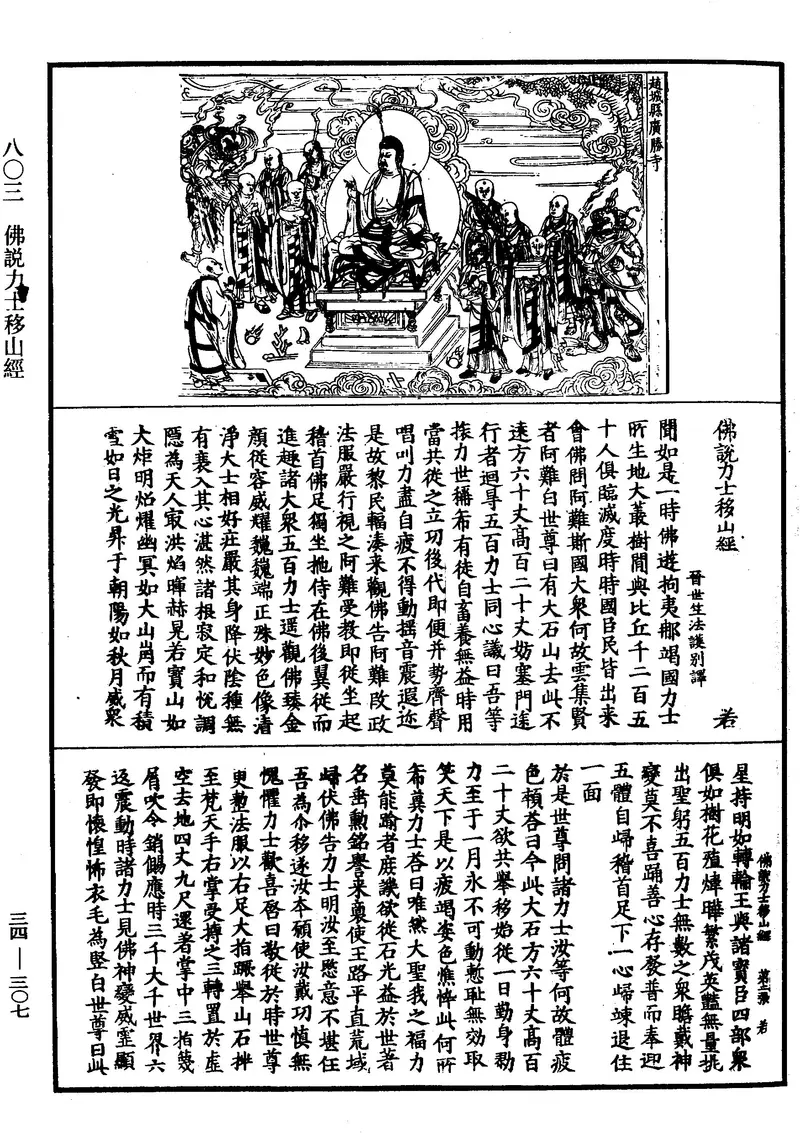 八〇三　佛説力士移山經
三四—三〇七
趙城縣廣勝寺
佛説力士移山經　若
晉世生法護別譯
聞如是一時佛遊拘夷那竭國力士
所生地大叢樹間與比丘千二百五
十人俱臨滅度時時國臣民皆出來
會佛問阿難斯國大衆何故雲集賢
者阿難白世尊曰有大石山去此不
遠方六十丈高百二十丈妨塞門途
行者迴尋五百力士同心議曰吾等
膂力世稱希有徒自畜養無益時用
當共徙之立功後代即便并勢齊聲
唱叫力盡自疲不得動揺音震遐迩
是故黎民輻湊来觀佛告阿難改政
法服嚴行視之阿難受教即從坐起
稽首佛足獨坐扡侍在佛後翼從而
進趣諸大衆五百力士遥觀佛臻金
顔從容威耀巍巍端正殊妙色像清
淨大士相好莊嚴其身降伏陰種無
有衰入其心湛然諸根寂定和悦調
隱為天人寂洪焰暉赫晃若寶山如
大炬明焰燿幽冥如大山崗而有積
雪如日之光昇于朝陽如秋月威衆
佛説力士移山經　第二張　若
星持明如轉輪王與諸寶臣四部衆
俱如樹花殖煒曄繁茂英豔無量挑
出聖躬五百力士無數之衆瞻戴神
變莫不喜踊善心存發普而奉迎
五體自歸稽首足下一心歸竦退住
一面
於是世尊問諸力士汝等何故體疲
色頓荅曰今此大石方六十丈高百
二十丈欲共舉移始從一日勤身勠
力至于一月永不可動慙耻無効取
笑天下是以疲竭姿色憔悴此何所
希冀力士荅曰唯然大聖我之福力
莫能踰者庶譏欲徙石光益於世著
名垂勲銘譽来裔使王路平直荒域
歸伏佛告力士明汝至愍意不堪任
吾為尒移遂汝本願使汝戴功慎無
愧懼力士歡喜啓曰敬從於時世尊
更整法服以右足大指蹶舉山石挑
至梵天手右掌受摶之三轉置於虚
空去地四丈九尺還著掌中三指篾
屑吹令銷餳應時三千大千世界六
返震動時諸力士見佛神變威靈顯
發即懷惶怖衣毛為竪白世尊曰此